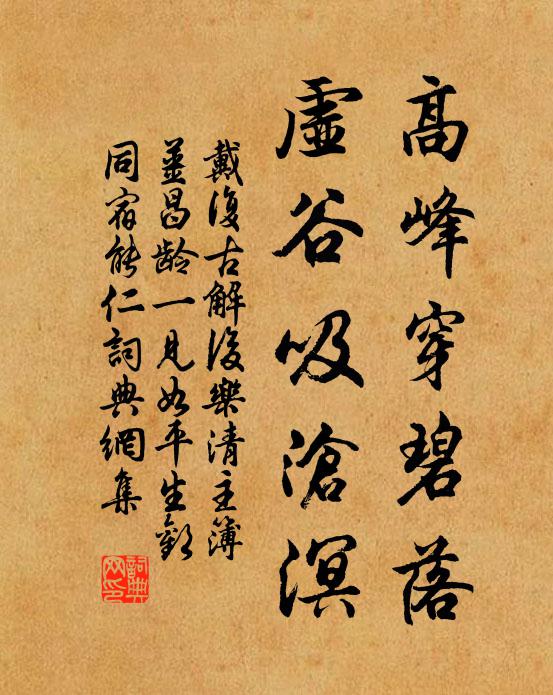 高峰穿碧落
虛谷吸滄溟
戴復古解后樂清主簿
薑昌齡一見如平生歡
同宿能仁詞典網集
詞典網印